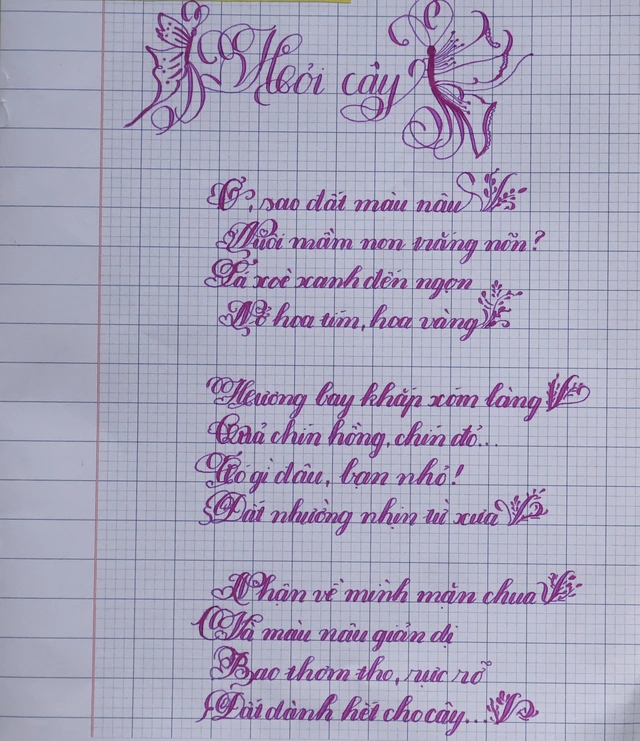 Hỏi cây?
Ơ, sao đất màu nâu
Nuôi mầm non trắng nõn?
Lá xoè xanh đến ngọn
Nở hoa tím, hoa vàng
Hương bay khắp xóm làng
Quả chín hồng, chín đỏ...
Có gì đâu, bạn nhỏ!
Đất nhường nhịn từ xưa
Nhận về mình mặn chua
Và màu nâu giản dị
Bao thơm tho, rực rỡ
Đất dành hết cho cây...